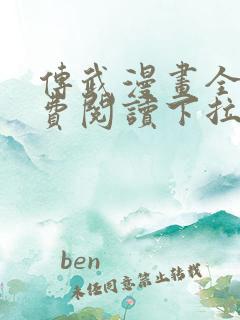 傳武漫畫全
費閱讀下拉
ben
未经同意禁止转载